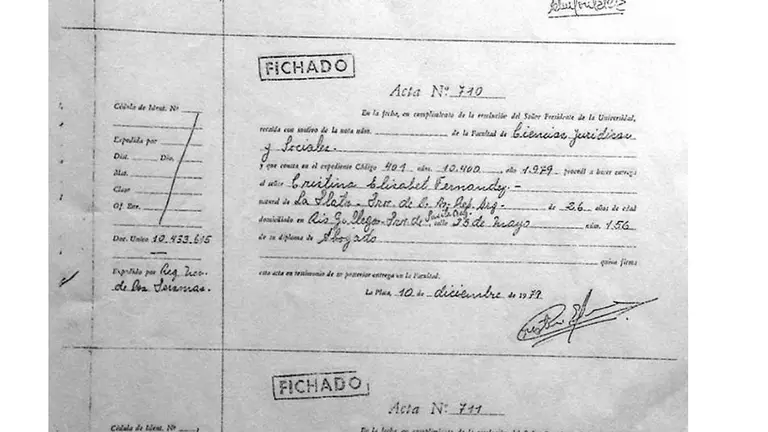 FICHADO
Acta Nº 710
En la fecha, en cumplimiento de la resolución del Señor Presidente de la Universidad,
recaída con motivo de la nota núm. de la Facultad de Ciencias Jurídicas
y Sociales.
y que consta en el expediente Código 401 núm. 10.400 año 1979 procedí a hacer entrega
al señor Cristina Elisabet Fernandez.-
natural de La Plata - Prov. de B. As. Rep. Arg. de 26 años de edad
domiciliado en Río Gallegos - Prov. de Santa Cruz, calle 25 de Mayo núm. 156
de su diploma de Abogado
quien firma
esta acta en testimonio de su posterior entrega en la Facultad.
La Plata, 10 de diciembre de 1979
Cédula de Ident. Nº
Expedida por
Dist. Dto.
Mat.
Clase
Of. Enr.
Doc. Unico 10.433.615
Expedido por Reg. Nac.
de las Personas.
FICHADO
Acta Nº 711
Cédula de Ident. Nº
En la fecha, en cumplimiento de la resolución del